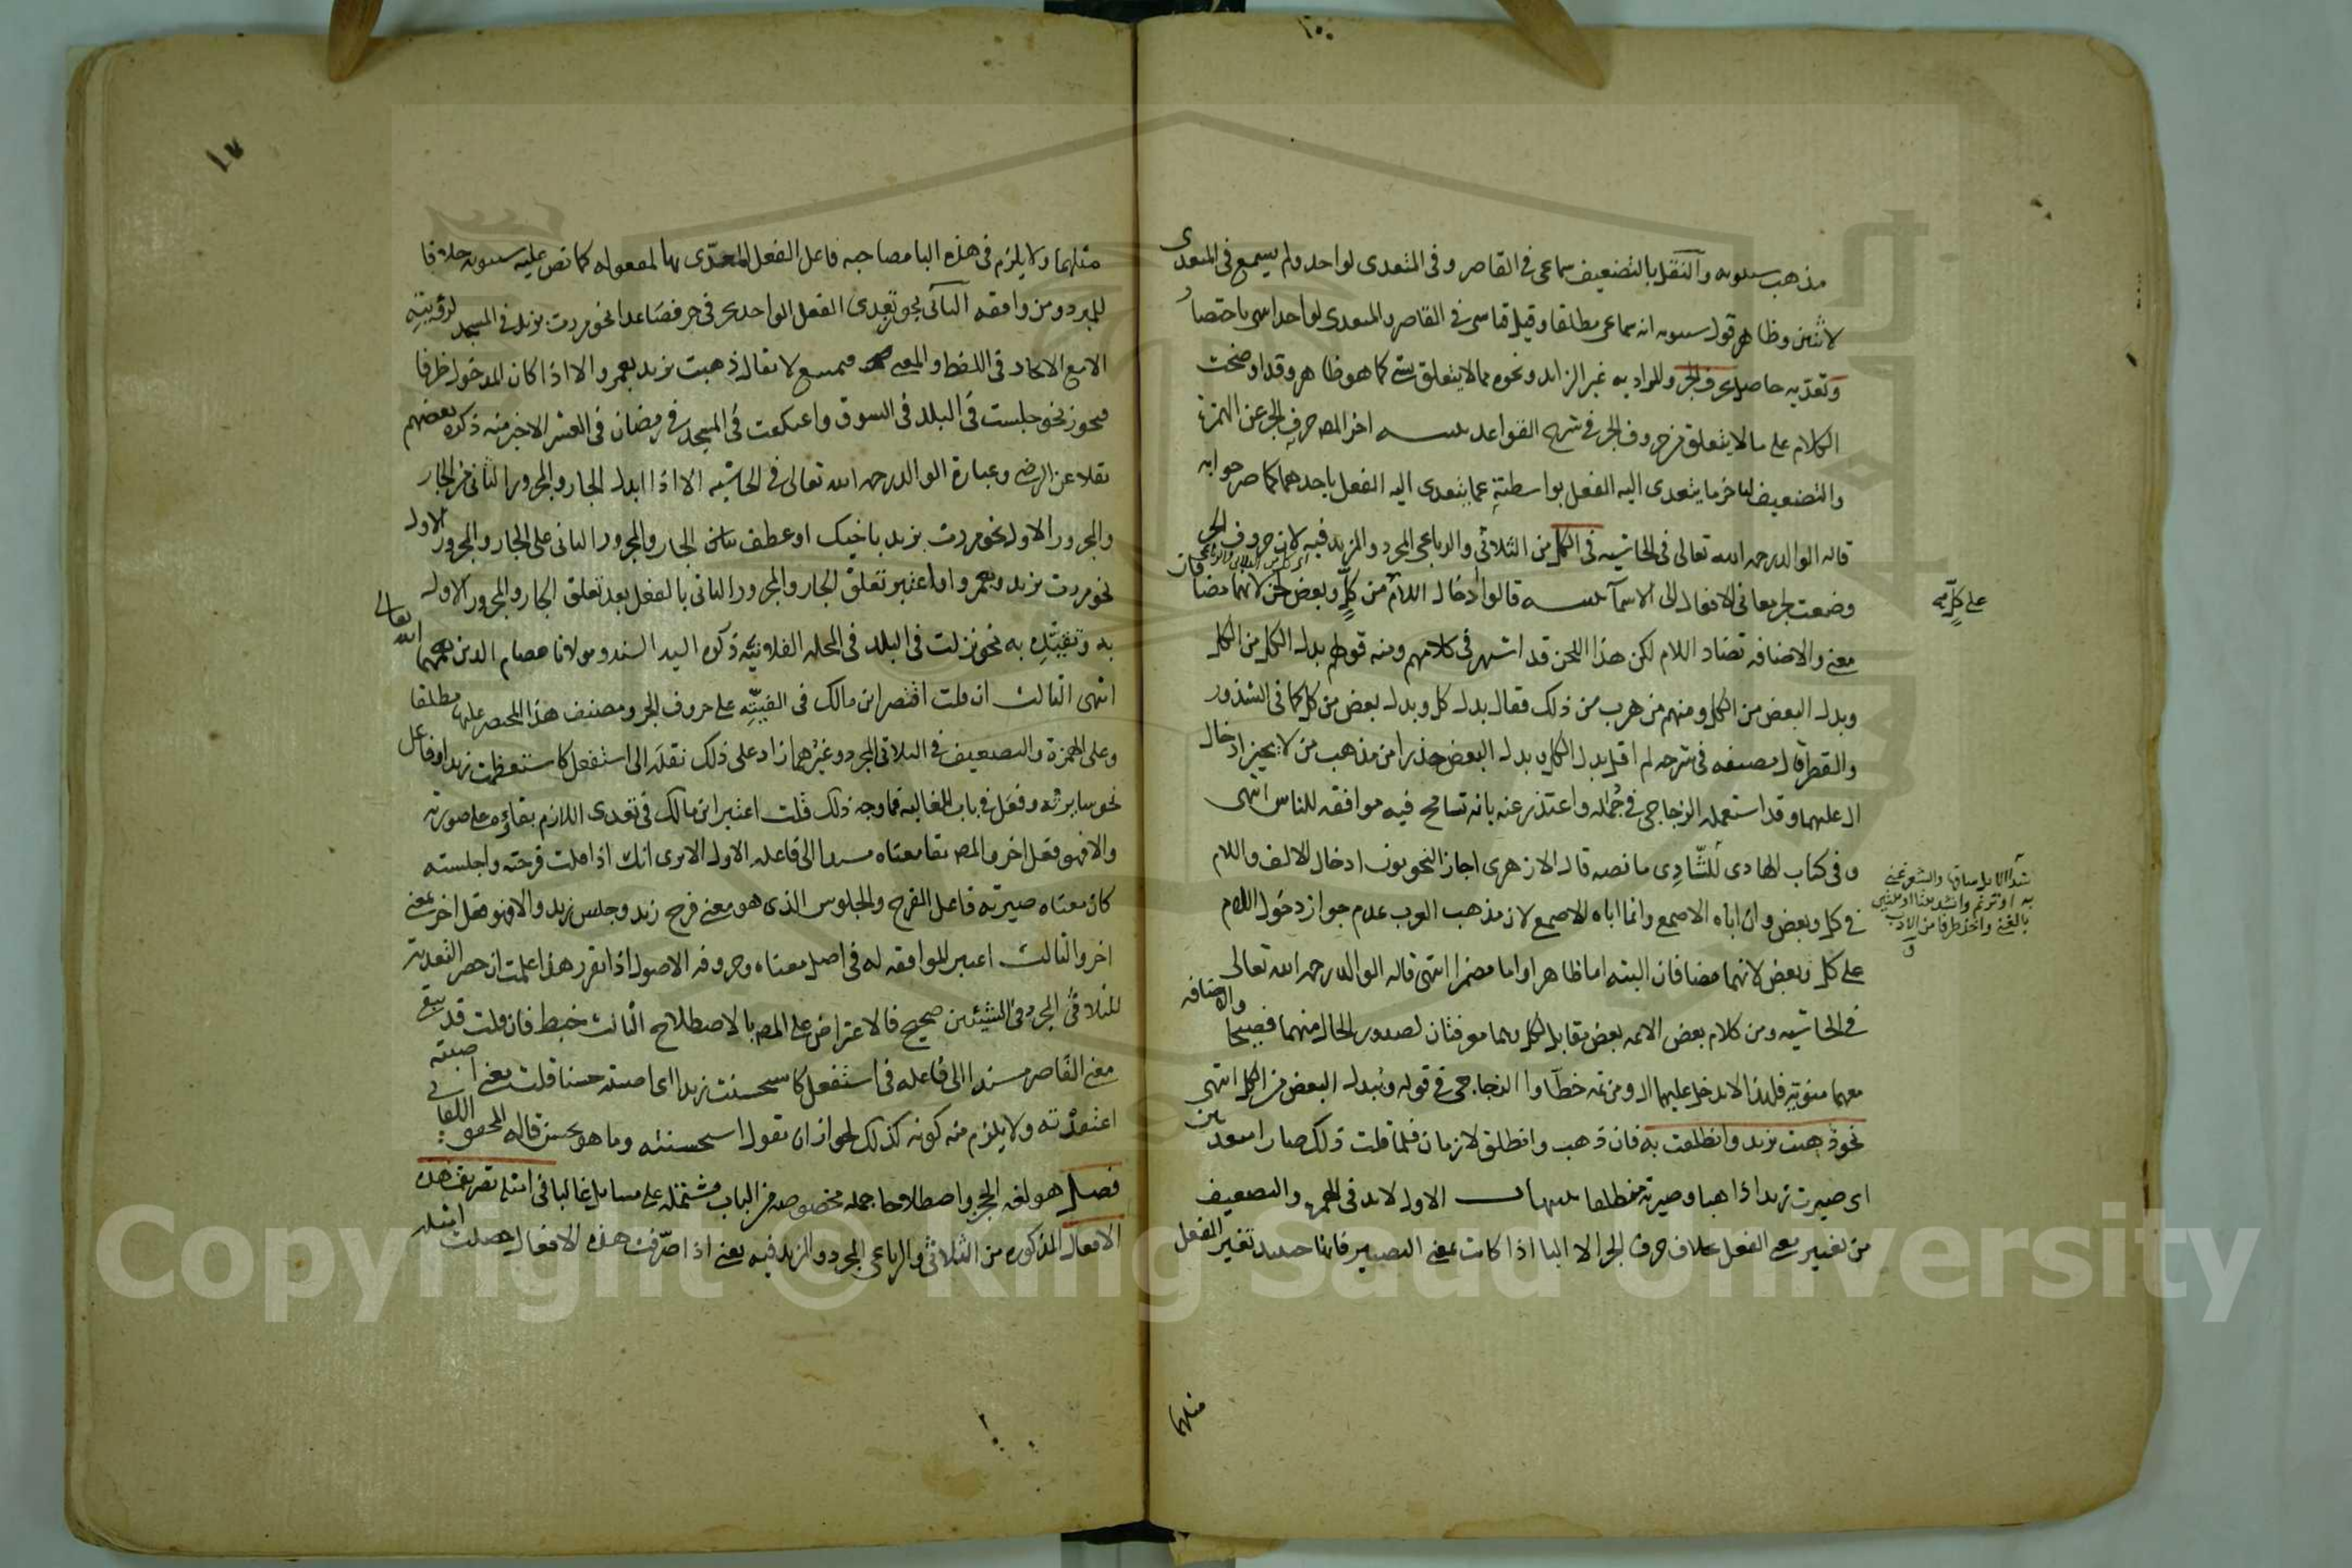 مذهب سيبويه والنقل بالتضعيف سماعى فى القاصر وفى المتعدى لواحد ولم يسمع فى المتعدى
لاثنين وظاهر قول سيبويه انه سماعى مطلقا وقيل قياسى فى القاصر والمتعدى لواحد انتهى باختصار
وتعديه حاصل بحرف الجر والمراد به غير الزايد ونحوه مما لا يتعلق بشئ كما هو ظاهر وقد اوضحت
الكلام على ما لا يتعلق من حروف الجر فى شرح القواعد تنبيه اخر المص حرف الجر عن الهمزة
والتضعيف لتاخر ما يتعدى اليه الفعل بواسطته عما يتعدى اليه الفعل باحدهما كما صرحوا به
قاله الوالد رحمه الله تعالى فى الحاشيه فى الكل من الثلاثى والرباعى المجرد والمزيد فيه لان حروف الجر
وضعت لجر معانى الافعال الى الاسما تنبيه قالوا ادخال اللام من كل وبعض لحن لانهما مضافان
معنى والاضافه تضاد اللام لكن هذا اللحن قد اشتهر فى كلامهم ومنه قولهم بدل الكل من الكل
وبدل البعض من الكل ومنهم من هرب من ذلك فقال بدل كل وبدل بعض من كل كما فى الشذور
والقطر قال مصنفه فى شرحه لم اقل بدل الكل وبدل البعض حذرا من مذهب من لا يجيز ادخال
ال عليهما وقد استعمله الزجاجى فى جُمَله واعتذر عنه بانه تسامح فيه موافقه للناس انتهى
وفى كتاب الهادى للشّادِى ما نصه قال الازهرى اجاز النحويون ادخال الالف واللام
فى كل وبعض وان اباه الاصمعى وانما اباه الاصمعى لان مذهب العرب عدم جواز دخول اللام
على كل وبعض لانهما مضافان البته اما ظاهرا واما مضمرا انتهى قاله الوالد رحمه الله تعالى
فى الحاشيه ومن كلام بعض الائمه بعض يقابل كل وهما معرفتان لصدور الحال منهما فصيحا والاضافه
معهما منويّة فلهذا لا تدخل عليهما ال ومن ثمه خطاوا الزجاجى فى قوله ويُبدل البعض من الكل انتهى
نحو ذهبت بزيد وانطلقت به فان ذهب وانطلق لازمان فلما قلت ذلك صارا متعديين
اى صيرت زيدا ذاهبا وصيرته منطلقا تنبيهات الاول لابد فى الهمزه والتضعيف
من تغيير معنى الفعل بخلاف حرف الجر الا البا اذا كانت بمعنى التصيير فانها حينئذ تغير الفعل
مثلهما
على كلّ
شدا الابل ساقها والشعر غنى
به او ترنم
بالغنى واخذ طرفا من الادب
١٧
مثلهما ولا يلزم فى هذه البا مصاحبه فاعل الفعل المعدّى بها لمفعوله كما نص عليه سيبويه خلافا
للمبرد ومن وافقه الثانى يجوز تعدى الفعل الواحد بحرفى جر فصاعدا نحو مررت بزيد فى المسجد لرؤيته
الا مع الاتحاد فى اللفظ والمعنى فيمتنع لا يقال ذهبت بزيد بعمرو الا اذا كان المدخول ظرفا
فيجوز نحو جلست فى البلد فى السوق واعتكفت فى المسجد فى رمضان فى العشر الاخير منه ذكره بعضهم
نقلا عن الرضى وعبارة الوالد رحمه الله تعالى فى الحاشيه الا اذا ابدل الجار والمجرور الثانى من الجار
والمجرور الاول نحو مررت بزيد باخيك او عطف الجار والمجرور الثانى على الجار والمجرور الاول
نحو مررت بزيد وبعمرو او اعتبر تعلق الجار والمجرور الثانى بالفعل بعد تعلق الجار والمجرور الاول
به وتقييده به نحو نزلت فى البلد فى المحله الفلانيه ذكره السيد السند ومولانا عصام الدين رحمهما الله تعالى
انتهى الثالث ان قلت اقتصر ابن مالك فى الفيّته على حروف الجر ومصنف هذا المختصر عليها مطلقا
وعلى الهمزة والتضعيف فى الثلاثى المجرد وغيرهما زاد على ذلك نقله الى استفعل كاستعظمت زيدا وفاعل
نحو سايرته وفعَل فى باب المغالبه فما وجه ذلك قلت اعتبر ابن مالك فى تعدى اللازم بقاءه على صورته
والا فهو فعل اخر والمص بقا معناه مسندا الى فاعله الاول الا ترى انك اذا قلت فرحته واجلسته
كان معناه صيرته فاعل الفرح والجلوس الذى هو معنى فرح زيد وجلس زيد والا فهو فعل اخر بمعنى
اخر والثالث اعتبر الموافقه له فى اصل معناه وحروفه الاصول اذا تقرر هذا علمت ان حصر التعديه
للثلاثى المجرد فى الشيئين صحيح فالاعتراض على المص بالاصطلاح الثالث خبط فان قلت قد يبقى
معنى القاصر مسندا الى فاعله فى استفعل كاستحسنت زيدا اى اصبته حسنا قلت معنى اصبته
اعتقدته ولا يلزم منه كونه كذلك لجواز ان تقول استحسنته وما هو بحسن قاله المحقق اللقانى
فصل هو لغه الحجز واصطلاحا جمله مخصوصه من الباب مشتمله على مسايل غالبا فى امثله تصريف هذه
الافعال المذكوره من الثلاثى والرباعى المجرد والمزيد فيه يعنى اذا صرّفت هذه الافعال حصلت امثله
Copyright © King Saud University